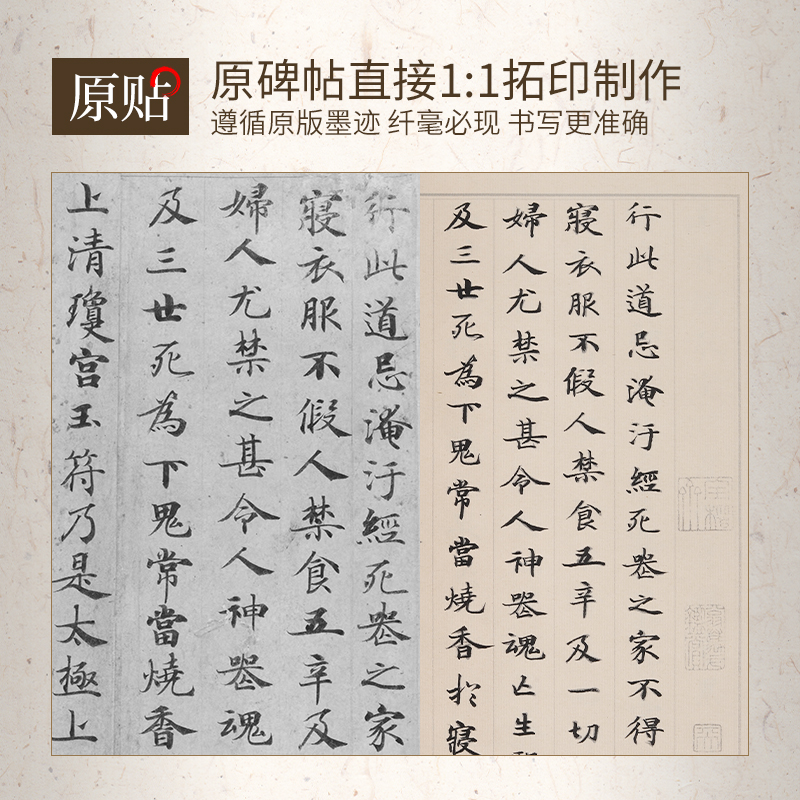 原贴
原碑帖直接1:1拓印制作
遵循原版墨迹 纤毫必现 书写更准确
行此道忌淹汙經死喪之家
寢衣服不假人禁食五辛及
婦人尤禁之甚令人神喪魂
及三世死為下鬼常當燒香
上清瓊宫玉符乃是太極上
行此道忌淹汙經死喪之家不得
寢衣服不假人禁食五辛及一切
婦人尤禁之甚令人神喪魂亡生
及三世死為下鬼常當燒香於寢